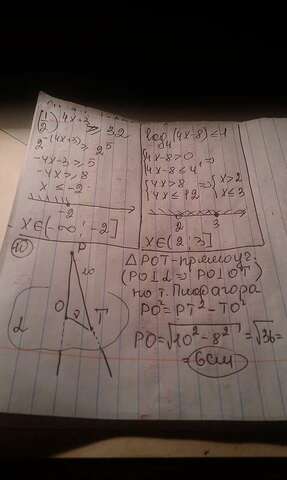 (1/2)^(4x+3) ≥ 32
2^-(4x+3) ≥ 2^5
-4x-3 ≥ 5
-4x ≥ 8
x ≤ -2
-2
x∈(-∞; -2]
log4 (4x-8) ≤ 1
{4x-8>0
{4x-8≤4^1 ⇒
{4x>8
{4x≤12 ⇒ {x>2
{x≤3
2 3
x∈(2; 3]
10
P
10
O
8
T
α
Δ POT - прямоуг.
(PO⊥α ⇒ PO⊥OT)
по т. Пифагора
PO² = PT² - TO²
PO = √10² - 8² = √36 =
= 6 см